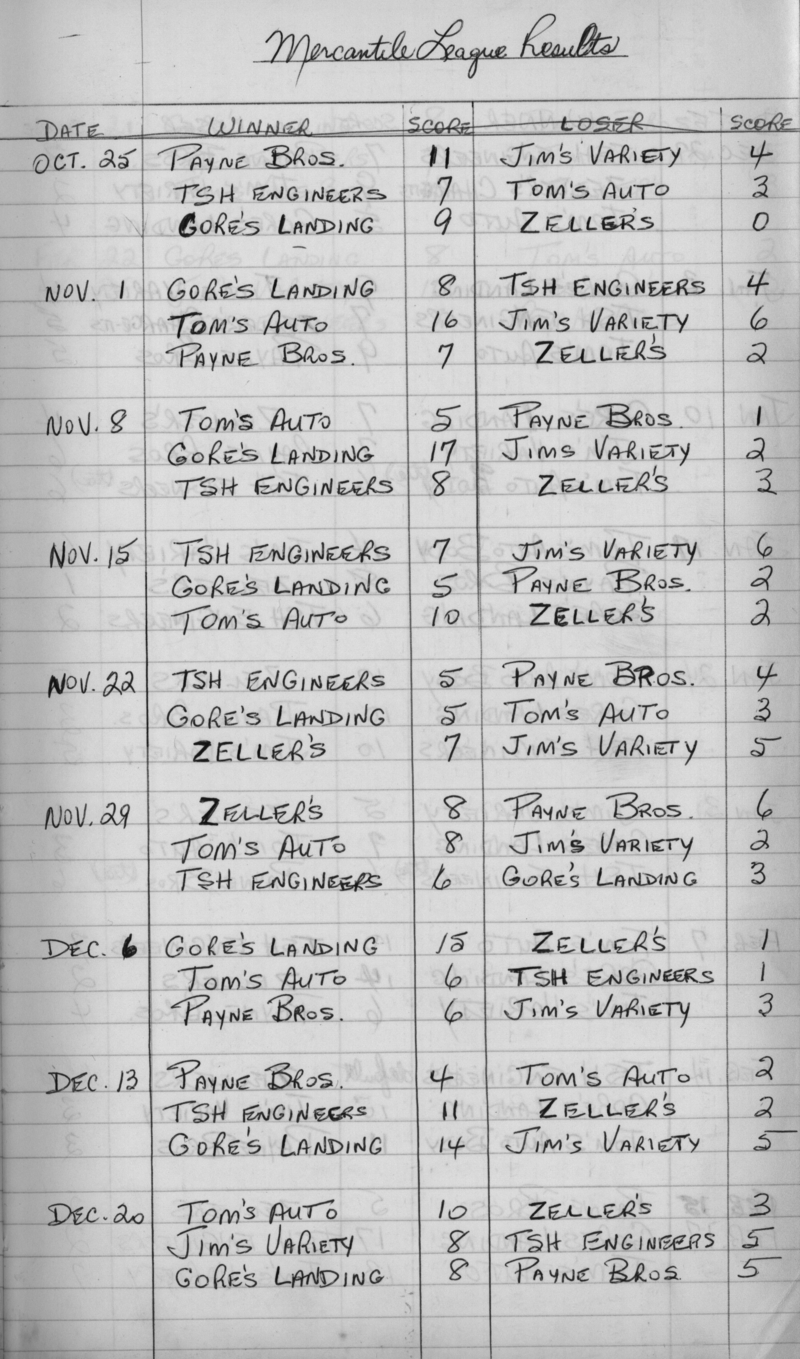 Mercantile League Results
DATE WINNER SCORE LOSER SCORE
OCT. 25 PAYNE BROS. 11 JIM'S VARIETY 4
TSH ENGINEERS 7 TOM'S AUTO 3
GORE'S LANDING 9 ZELLER'S 0
NOV. 1 GORE'S LANDING 8 TSH ENGINEERS 4
TOM'S AUTO 16 JIM'S VARIETY 6
PAYNE BROS. 7 ZELLER'S 2
NOV. 8 TOM'S AUTO 5 PAYNE BROS. 1
GORE'S LANDING 17 JIMS VARIETY 2
TSH ENGINEERS 8 ZELLER'S 3
NOV. 15 TSH ENGINEERS 7 JIM'S VARIETY 6
GORE'S LANDING 5 PAYNE BROS. 2
TOM'S AUTO 10 ZELLER'S 2
NOV. 22 TSH ENGINEERS 5 PAYNE BROS. 4
GORE'S LANDING 5 TOM'S AUTO 3
ZELLER'S 7 JIM'S VARIETY 5
NOV. 29 ZELLER'S 8 PAYNE BROS. 6
TOM'S AUTO 8 JIM'S VARIETY 2
TSH ENGINEERS 6 GORE'S LANDING 3
DEC. 6 GORE'S LANDING 15 ZELLER'S 1
TOM'S AUTO 6 TSH ENGINEERS 1
PAYNE BROS. 6 JIM'S VARIETY 3
DEC. 13 PAYNE BROS. 4 TOM'S AUTO 2
TSH ENGINEERS 11 ZELLER'S 2
GORE'S LANDING 14 JIM'S VARIETY 5
DEC. 20 TOM'S AUTO 10 ZELLER'S 3
JIM'S VARIETY 8 TSH ENGINEERS 5
GORE'S LANDING 8 PAYNE BROS 5